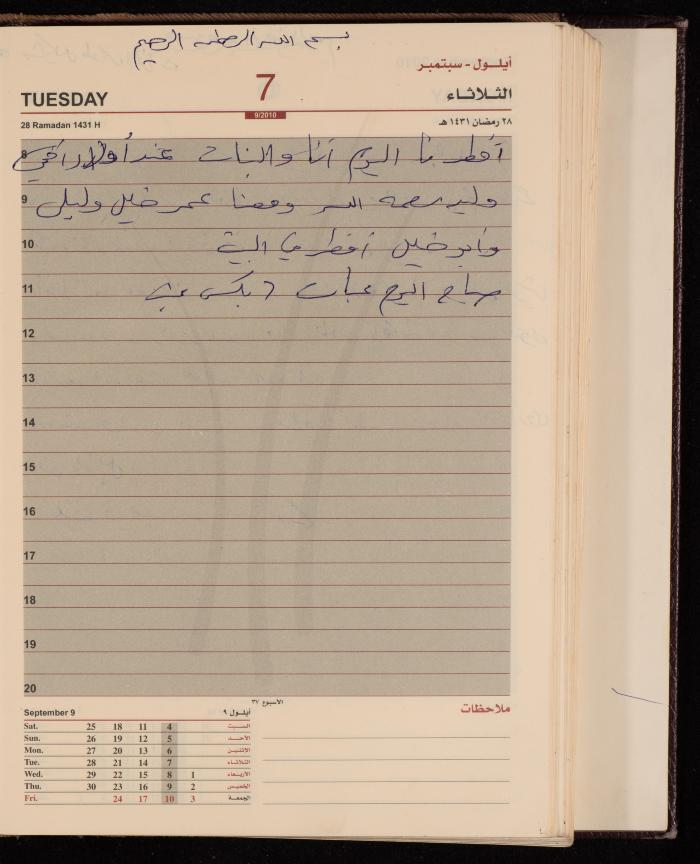 بسم الله الرحمن الرحيم
أيلـول - سبتمبر
TUESDAY 7 الثـلاثـاء
9/2010
28 Ramadan 1431 H ٢٨ رمضان ١٤٣١ هـ
8 أفطرنا اليوم أنا والبنات عند أولاد أخي
9 وليد رحمه الله ومعنا عمر خليل وليلى
10 وأبو خليل أفطر في البيت
11 صباح اليوم
12
13
14
15
16
17
18
19
20
الأسبوع ٣٧
September 9 أيلـول ٩
Sat. 25 18 11 4 السبت
Sun. 26 19 12 5 الأحد
Mon. 27 20 13 6 الاثنين
Tue. 28 21 14 7 الثلاثاء
Wed. 29 22 15 8 1 الأربعاء
Thu. 30 23 16 9 2 الخميس
Fri. 24 17 10 3 الجمعة
ملاحظات